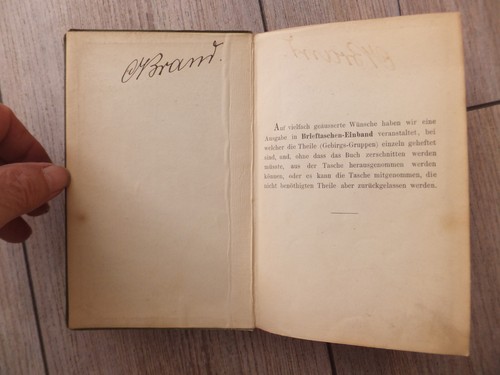 CNBrand.
Auf vielfach geäusserte Wünsche haben wir eine
Ausgabe in Brieftaschen-Einband veranstaltet, bei
welcher die Theile (Gebirgs-Gruppen) einzeln geheftet
sind, und, ohne dass das Buch zerschnitten werden
müsste, aus der Tasche herausgenommen werden
können, oder es kann die Tasche mitgenommen, die
nicht benöthigten Theile aber zurückgelassen werden.